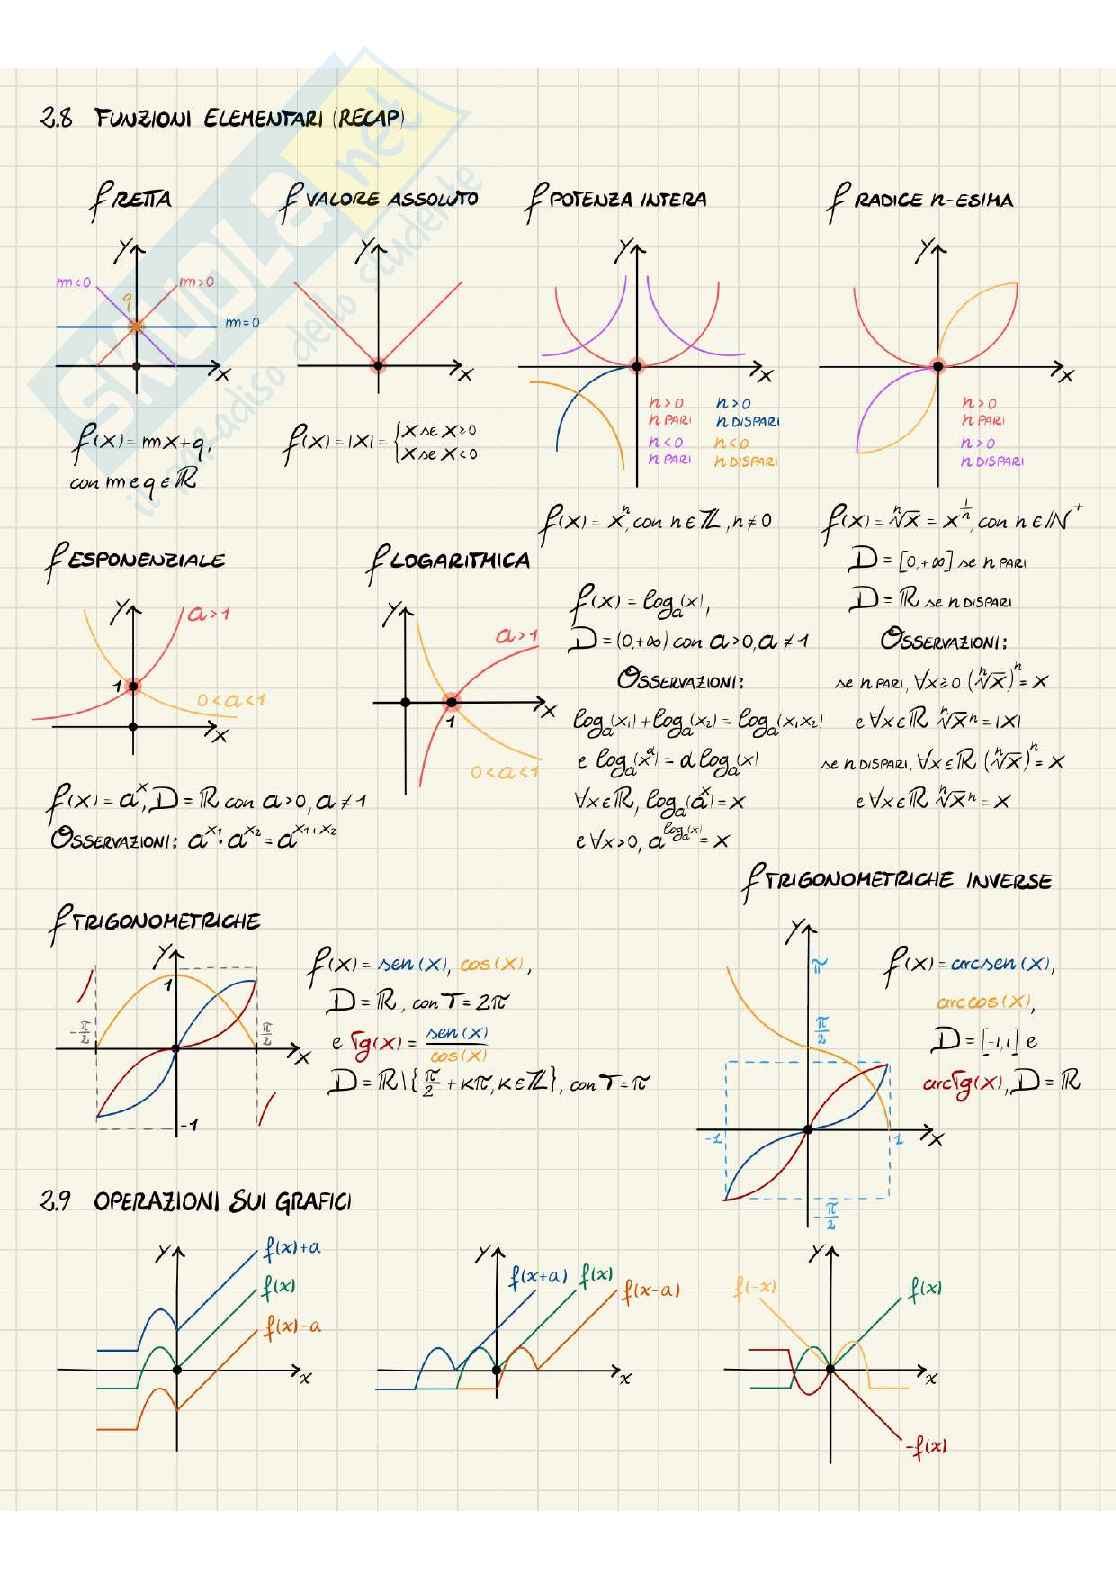 2.8 FUNZIONI ELEMENTARI (RECAP)
f RETTA
y
m<0
m>0
q
m=0
x
f(x) = mx+q,
con m e q ∈ ℝ
f VALORE ASSOLUTO
y
x
f(x) = |x| = { x se x≥0
x se x<0
f POTENZA INTERA
y
x
n>0 n>0
n PARI n DISPARI
n<0 n<0
n PARI n DISPARI
f(x) = xⁿ, con n ∈ ℤ, n≠0
f RADICE n-ESIMA
y
x
n>0
n PARI
n>0
n DISPARI
f(x) = ⁿ√x = x^(1/n), con n ∈ ℕ⁺
D = [0,+∞] se n PARI
D = ℝ se n DISPARI
OSSERVAZIONI:
se n PARI, ∀x≥0 (ⁿ√x)ⁿ = x
e ∀x∈ℝ ⁿ√xⁿ = |x|
se n DISPARI, ∀x∈ℝ (ⁿ√x)ⁿ = x
e ∀x∈ℝ ⁿ√xⁿ = x
f ESPONENZIALE
y
a>1
1
0<a<1
x
f(x) = aˣ, D = ℝ con a>0, a≠1
OSSERVAZIONI: a^x₁ · a^x₂ = a^(x₁+x₂)
f LOGARITMICA
y
a>1
1
x
0<a<1
f(x) = logₐ(x),
D = (0,+∞) con a>0, a≠1
OSSERVAZIONI:
logₐ(x₁) + logₐ(x₂) = logₐ(x₁x₂)
e logₐ(x^α) = α logₐ(x)
∀x∈ℝ, logₐ(aˣ) = x
e ∀x>0, a^(logₐ(x)) = x
f TRIGONOMETRICHE
y
1
-π/2
π/2
x
-1
f(x) = sen(x), cos(x),
D = ℝ, con T = 2π
e tg(x) = sen(x)/cos(x)
D = ℝ\{π/2 + kπ, k∈ℤ}, con T = π
f TRIGONOMETRICHE INVERSE
y
π
π/2
-1
1
x
-π/2
f(x) = arcsen(x),
arccos(x),
D = [-1,1] e
arctg(x), D = ℝ
2.9 OPERAZIONI SUI GRAFICI
y
f(x)+a
f(x)
f(x)-a
x
y
f(x+a) f(x) f(x-a)
x
y
f(-x)
f(x)
x
-f(x)
SKUOLA.net
il paradiso dello studente